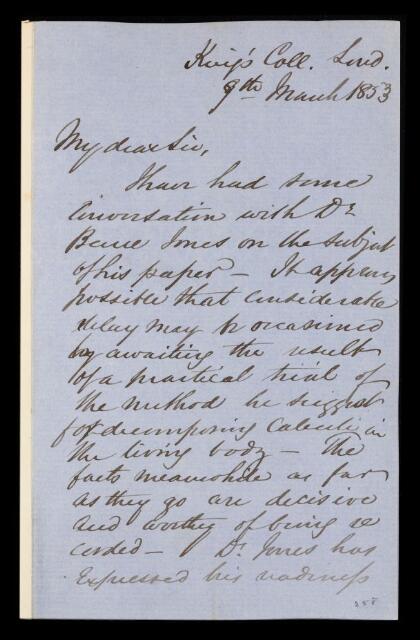 King's Coll. Lond.
9th March 1853
My dear Sir,
I have had some
Conversation with Dr
Bence Jones on the subject
of his paper – It appears
possible that considerable
delay may be occasioned
by awaiting the result
of a practical trial of
the method he suggests
for decomposing Calculi in
the living body – The
facts meanwhile as far
as they go are decisive
and worthy of being re
corded – Dr Jones has
expressed his readiness
258